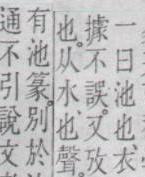 一曰池也衣
據不誤又攷
也从水也聲
有池篆別於
通不引說文